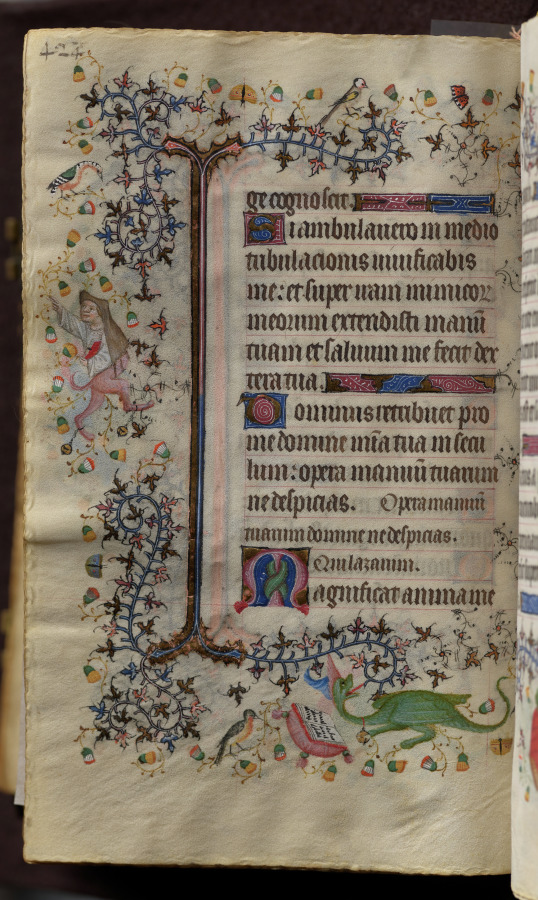 424
ge cognoscit.
Si ambulauero in medio
tribulacionis uiuificabis
me: et super iram inimicor
meorum extendisti manū
tuam et saluum me fecit dex
tera tua.
Dominus retribuet pro
me domine mīa tua in secu
lum: opera manuū tuarum
ne despicias. Opera manuū
tuarum domine ne despicias.
Qui lazarum.
Magnificat anima me